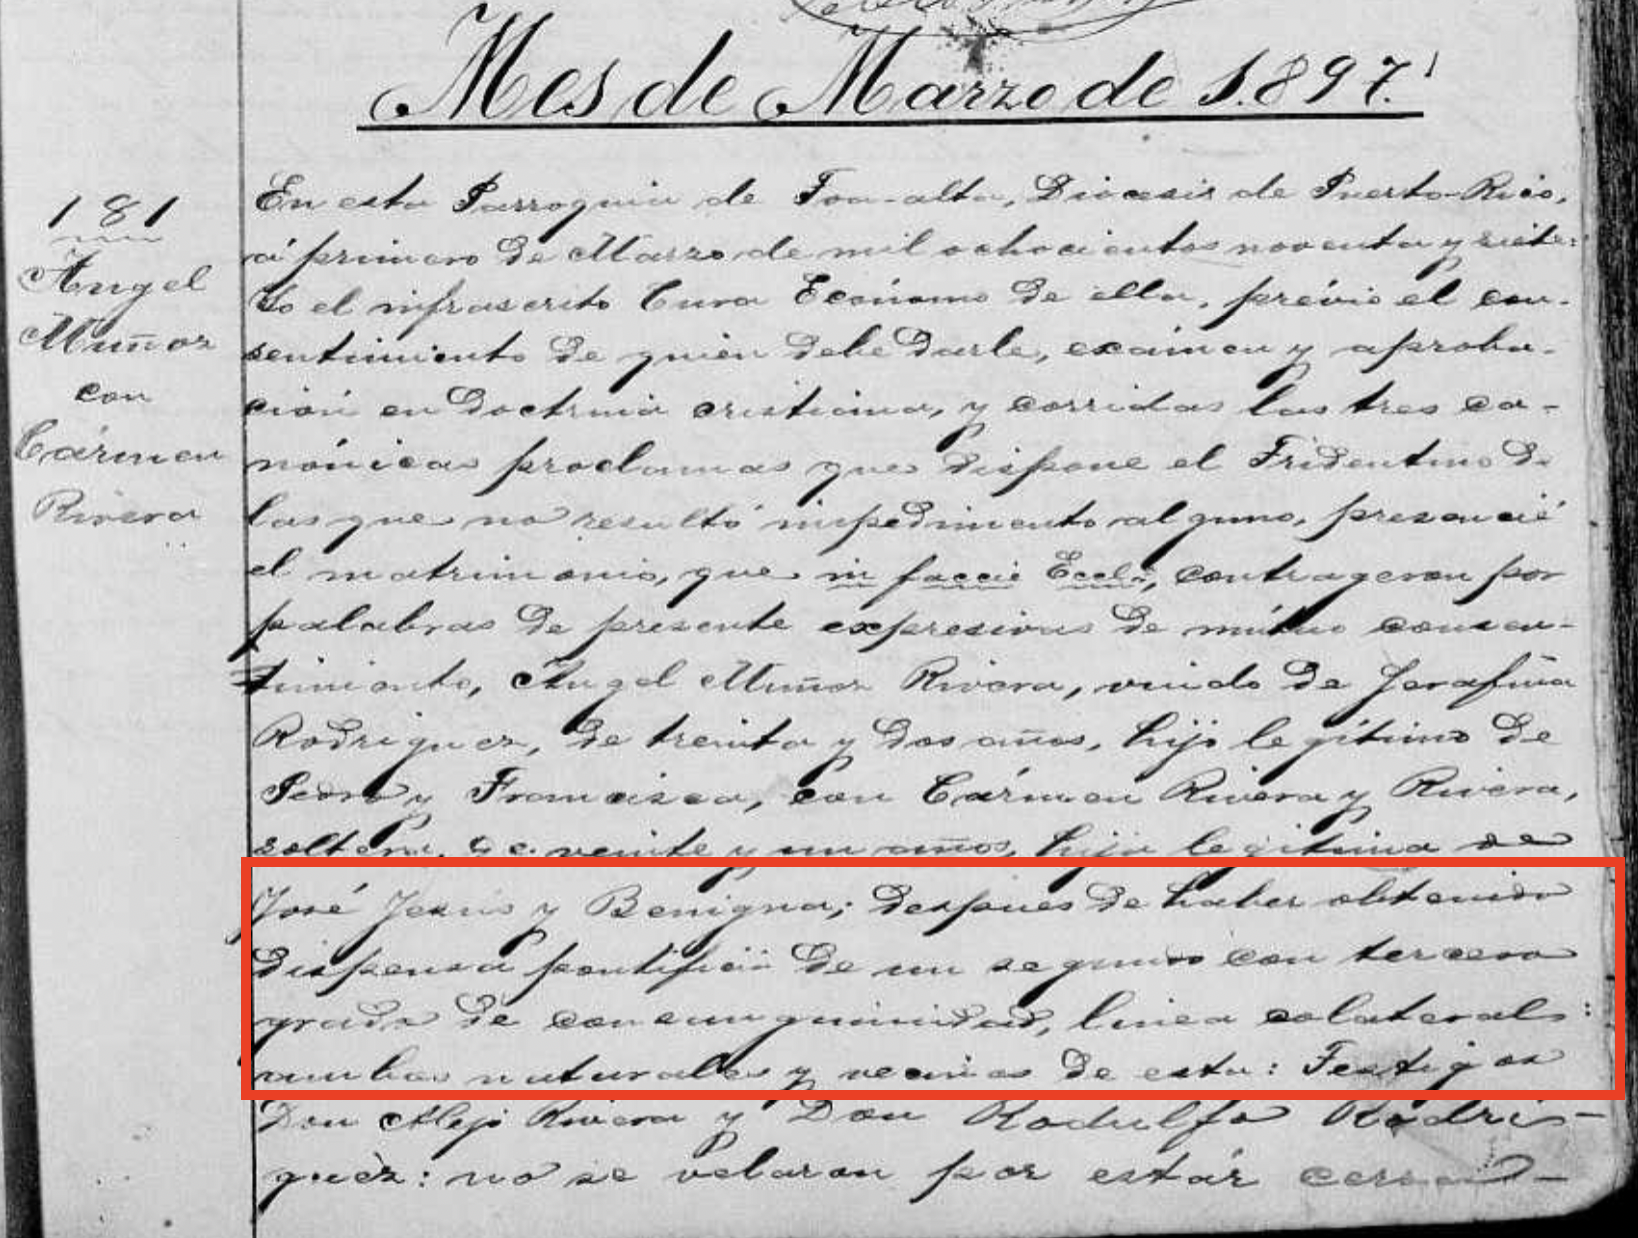 Mes de Marzo de 1.897.
181
Angel
Muñoz
con
Cármen
Rivera
En esta Parroquia de Toa-alta, Diócesis de Puerto-Rico,
á primero de Marzo de mil ochocientos noventa y siete:
Yo el infrascrito Cura Ecónomo de ella, prévio el con-
sentimiento de quién debe darle, exámen y aproba-
ción en doctrina cristiana, y corridas las tres ca-
nónicas proclamas que dispone el Tridentino de
las que no resultó impedimento alguno, presencié
el matrimonio, que in faccie Eccle, contrageron por
palabras de presente expresivas de mútuo consen-
timiento, Angel Muñoz Rivera, viudo de Serafina
Rodriguez, de treinta y dos años, hijo legítimo de
Pedro y Francisca, con Cármen Rivera y Rivera,
soltera, de veinte y un años, hija legitima de
José Jesús y Benigna; despues de haber obtenido
dispensa pontificia de un segundo con tercero
grado de consanguinidad, linea colateral:
ambos naturales y vecinos de esta: Testigos
Don Alejo Rivera y Don Rodulfo Rodri-
guez: no se velaron por estár cerrad-